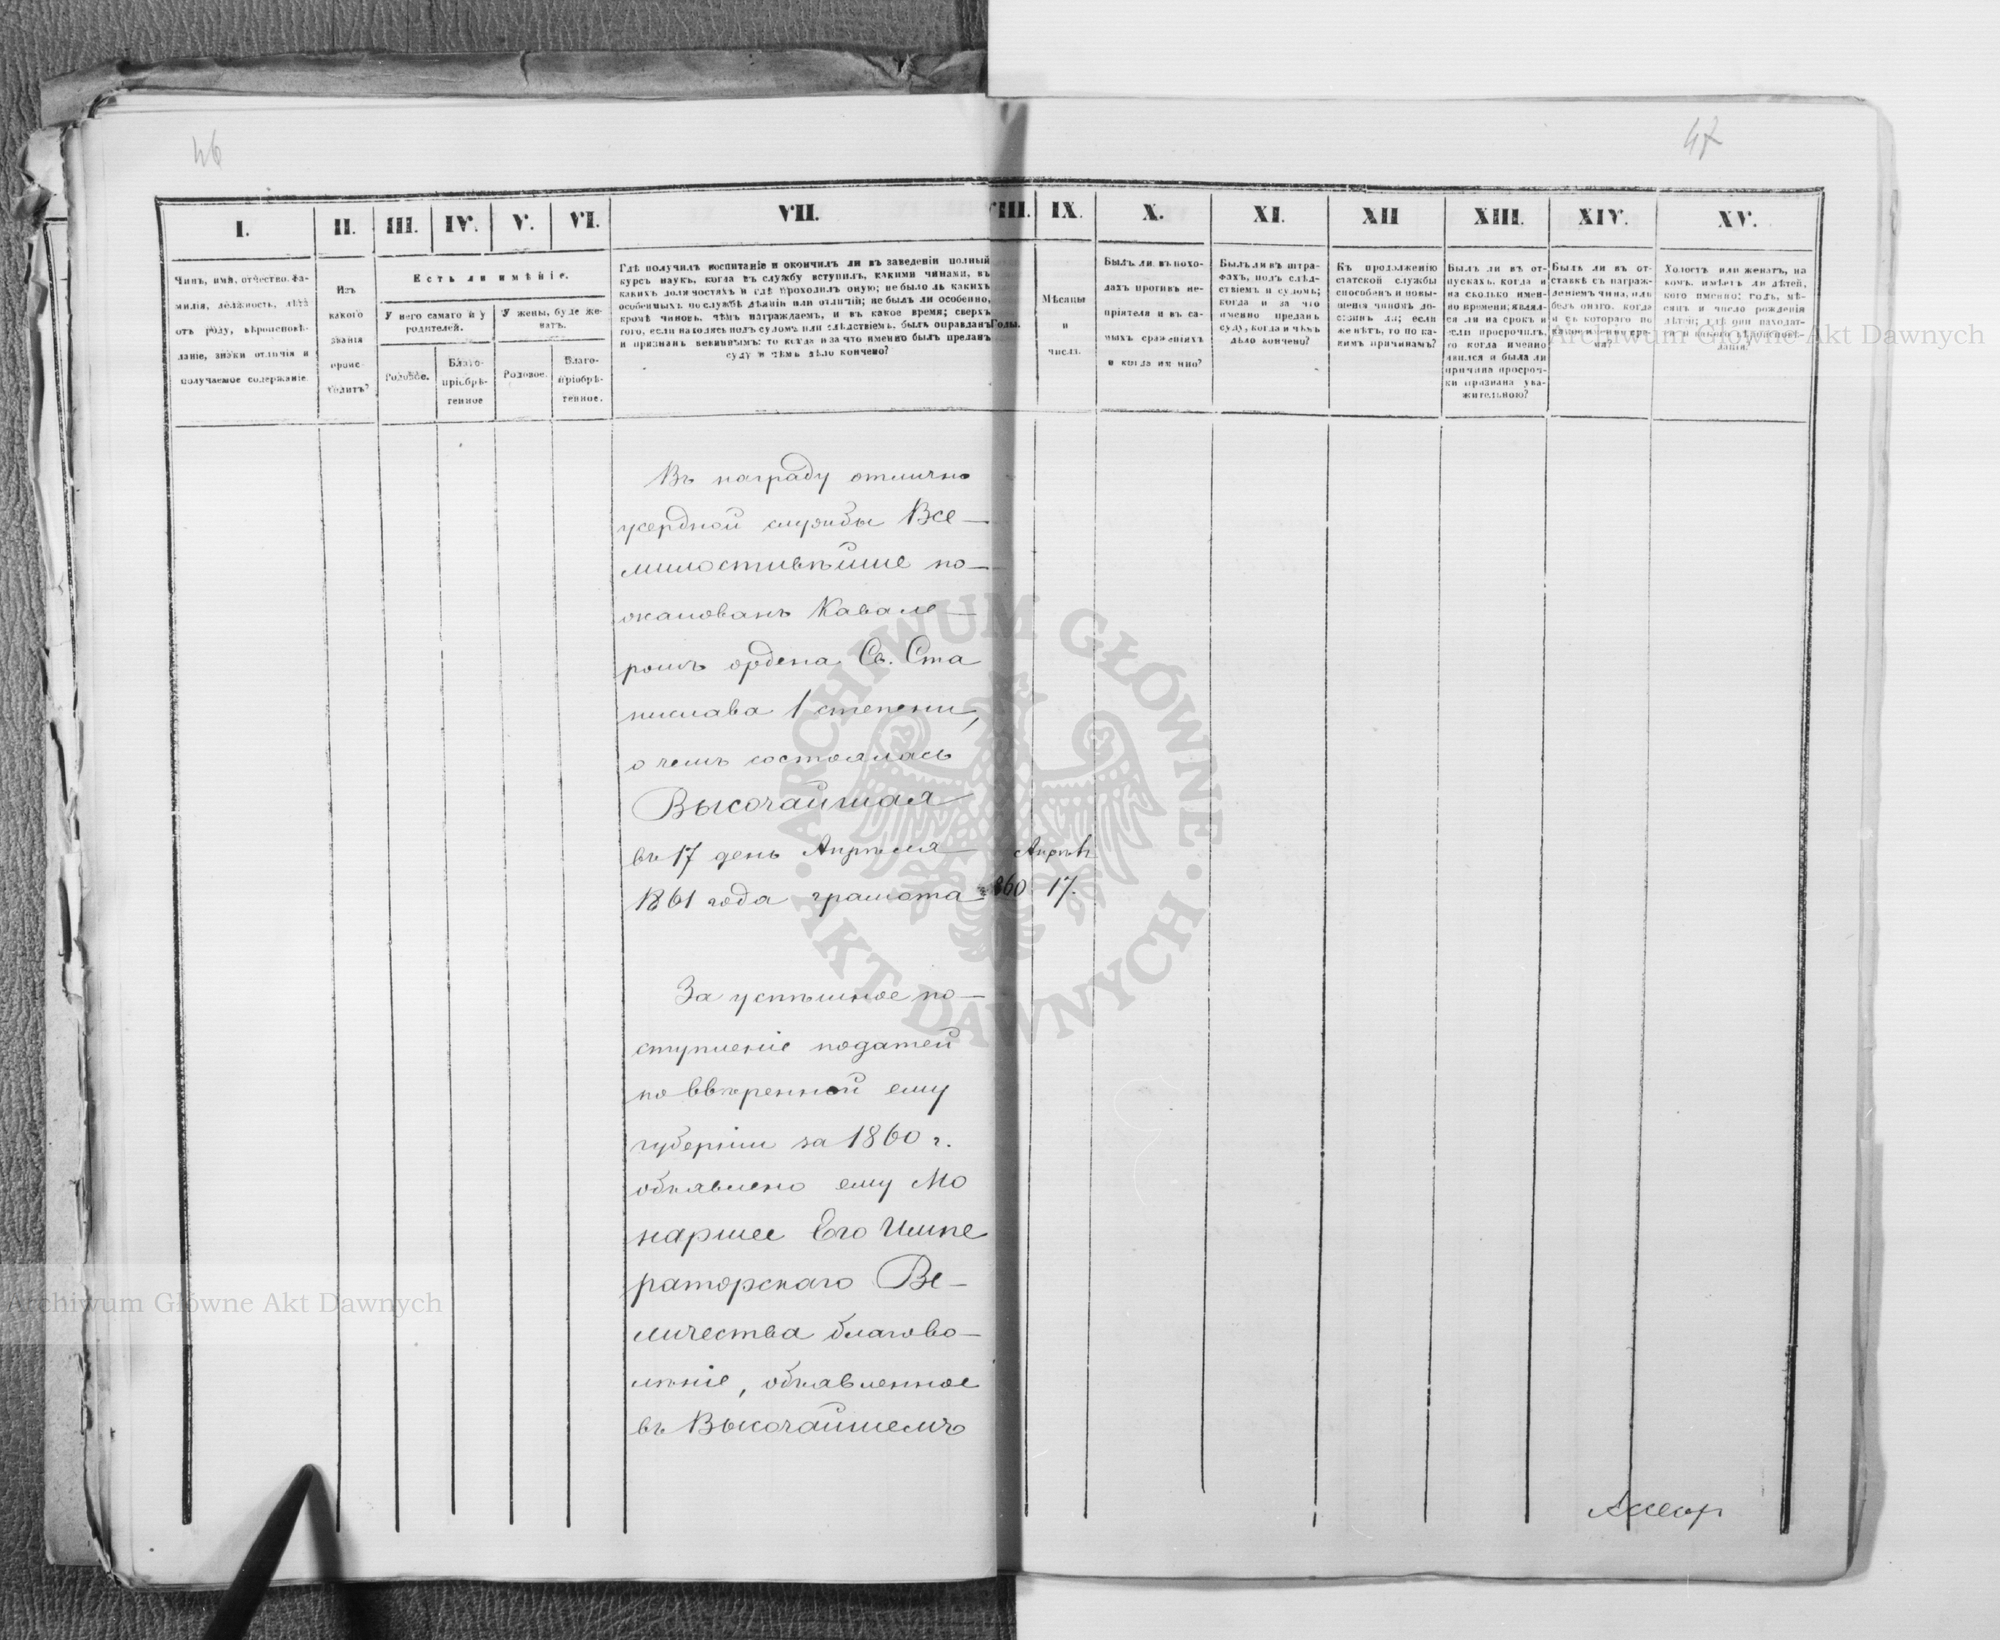 46
47
I.
II.
III.
IV.
V.
VI.
VII.
VIII.
IX.
X.
XI.
XII
XIII.
XIV.
XV.
Чинъ, имя, отчество, фа-
милія, должность, лѣта
отъ роду, вѣроисповѣ-
даніе, знаки отличія и
получаемое содержаніе
Изъ
какого
званія
проис-
ходитъ?
Есть ли имѣніе.
У него самаго и у
родителей.
У жены, буде же-
натъ.
Родовое.
Благо-
пріобрѣ-
тенное
Родовое.
Благо-
пріобрѣ-
тенное.
Гдѣ получилъ воспитаніе и окончилъ ли въ заведеніи полный
курсъ наукъ, когда въ службу вступилъ, какими чинами, въ
какихъ должностяхъ и гдѣ проходилъ оную; не было ль какихъ
особенныхъ по службѣ дѣяній или отличій; не былъ ли особенно,
кромѣ чиновъ, чѣмъ награждаемъ, и въ какое время; сверхъ
того, если находясь подъ судомъ или слѣдствіемъ, былъ оправданъ
и признанъ невиннымъ: то когда и за что именно былъ преданъ
суду и чѣмъ дѣло кончено?
Годы.
Мѣсяцы
и
числа.
Былъ ли въ похо-
дахъ противъ не-
пріятеля и въ са-
мыхъ сраженіяхъ
и когда именно?
Былъ ли въ штра-
фахъ, подъ слѣд-
ствіемъ и судомъ;
когда и за что
именно преданъ
суду, когда и чѣмъ
дѣло кончено?
Къ продолженію
статской службы
способенъ и повы-
шенія чиномъ до-
стоинъ ли; если
же нѣтъ, то по ка-
кимъ причинамъ?
Былъ ли въ от-
пускахъ, когда и
на сколько имен-
но времени; являл-
ся ли на срокъ и
если просрочилъ,
то когда именно
явился и была ли
причина просроч-
ки признана ува-
жительною?
Былъ ли въ от-
ставкѣ съ награж-
деніемъ чина, или
безъ онаго, когда
и съ котораго по
какое именно вре-
мя?
Холостъ или женатъ, на
комъ, имѣетъ ли дѣтей,
кого именно; годъ, мѣ-
сяцъ и число рожденія
дѣтей; гдѣ они находят-
ся и какого вѣроисповѣ-
данія?
Въ награду отлично
усердной службы Все-
милостивѣйше по-
жалованъ Кавале-
ромъ ордена Св. Ста
нислава 1 степени,
о чемъ состоялась
Высочайшая
въ 17 день Апрѣля
1861 года грамота
860
Апрѣл
17.
За успѣшное по-
ступленіе податей
по ввѣренной ему
губерніи за 1860 г.
объявлено ему Мо
наршее Его Импе
раторскаго Ве-
личества благово-
леніе, объявленное
въ Высочайшемъ
ARCHIWUM GŁÓWNE
AKT DAWNYCH
Archiwum Główne Akt Dawnych
Archiwum Główne Akt Dawnych